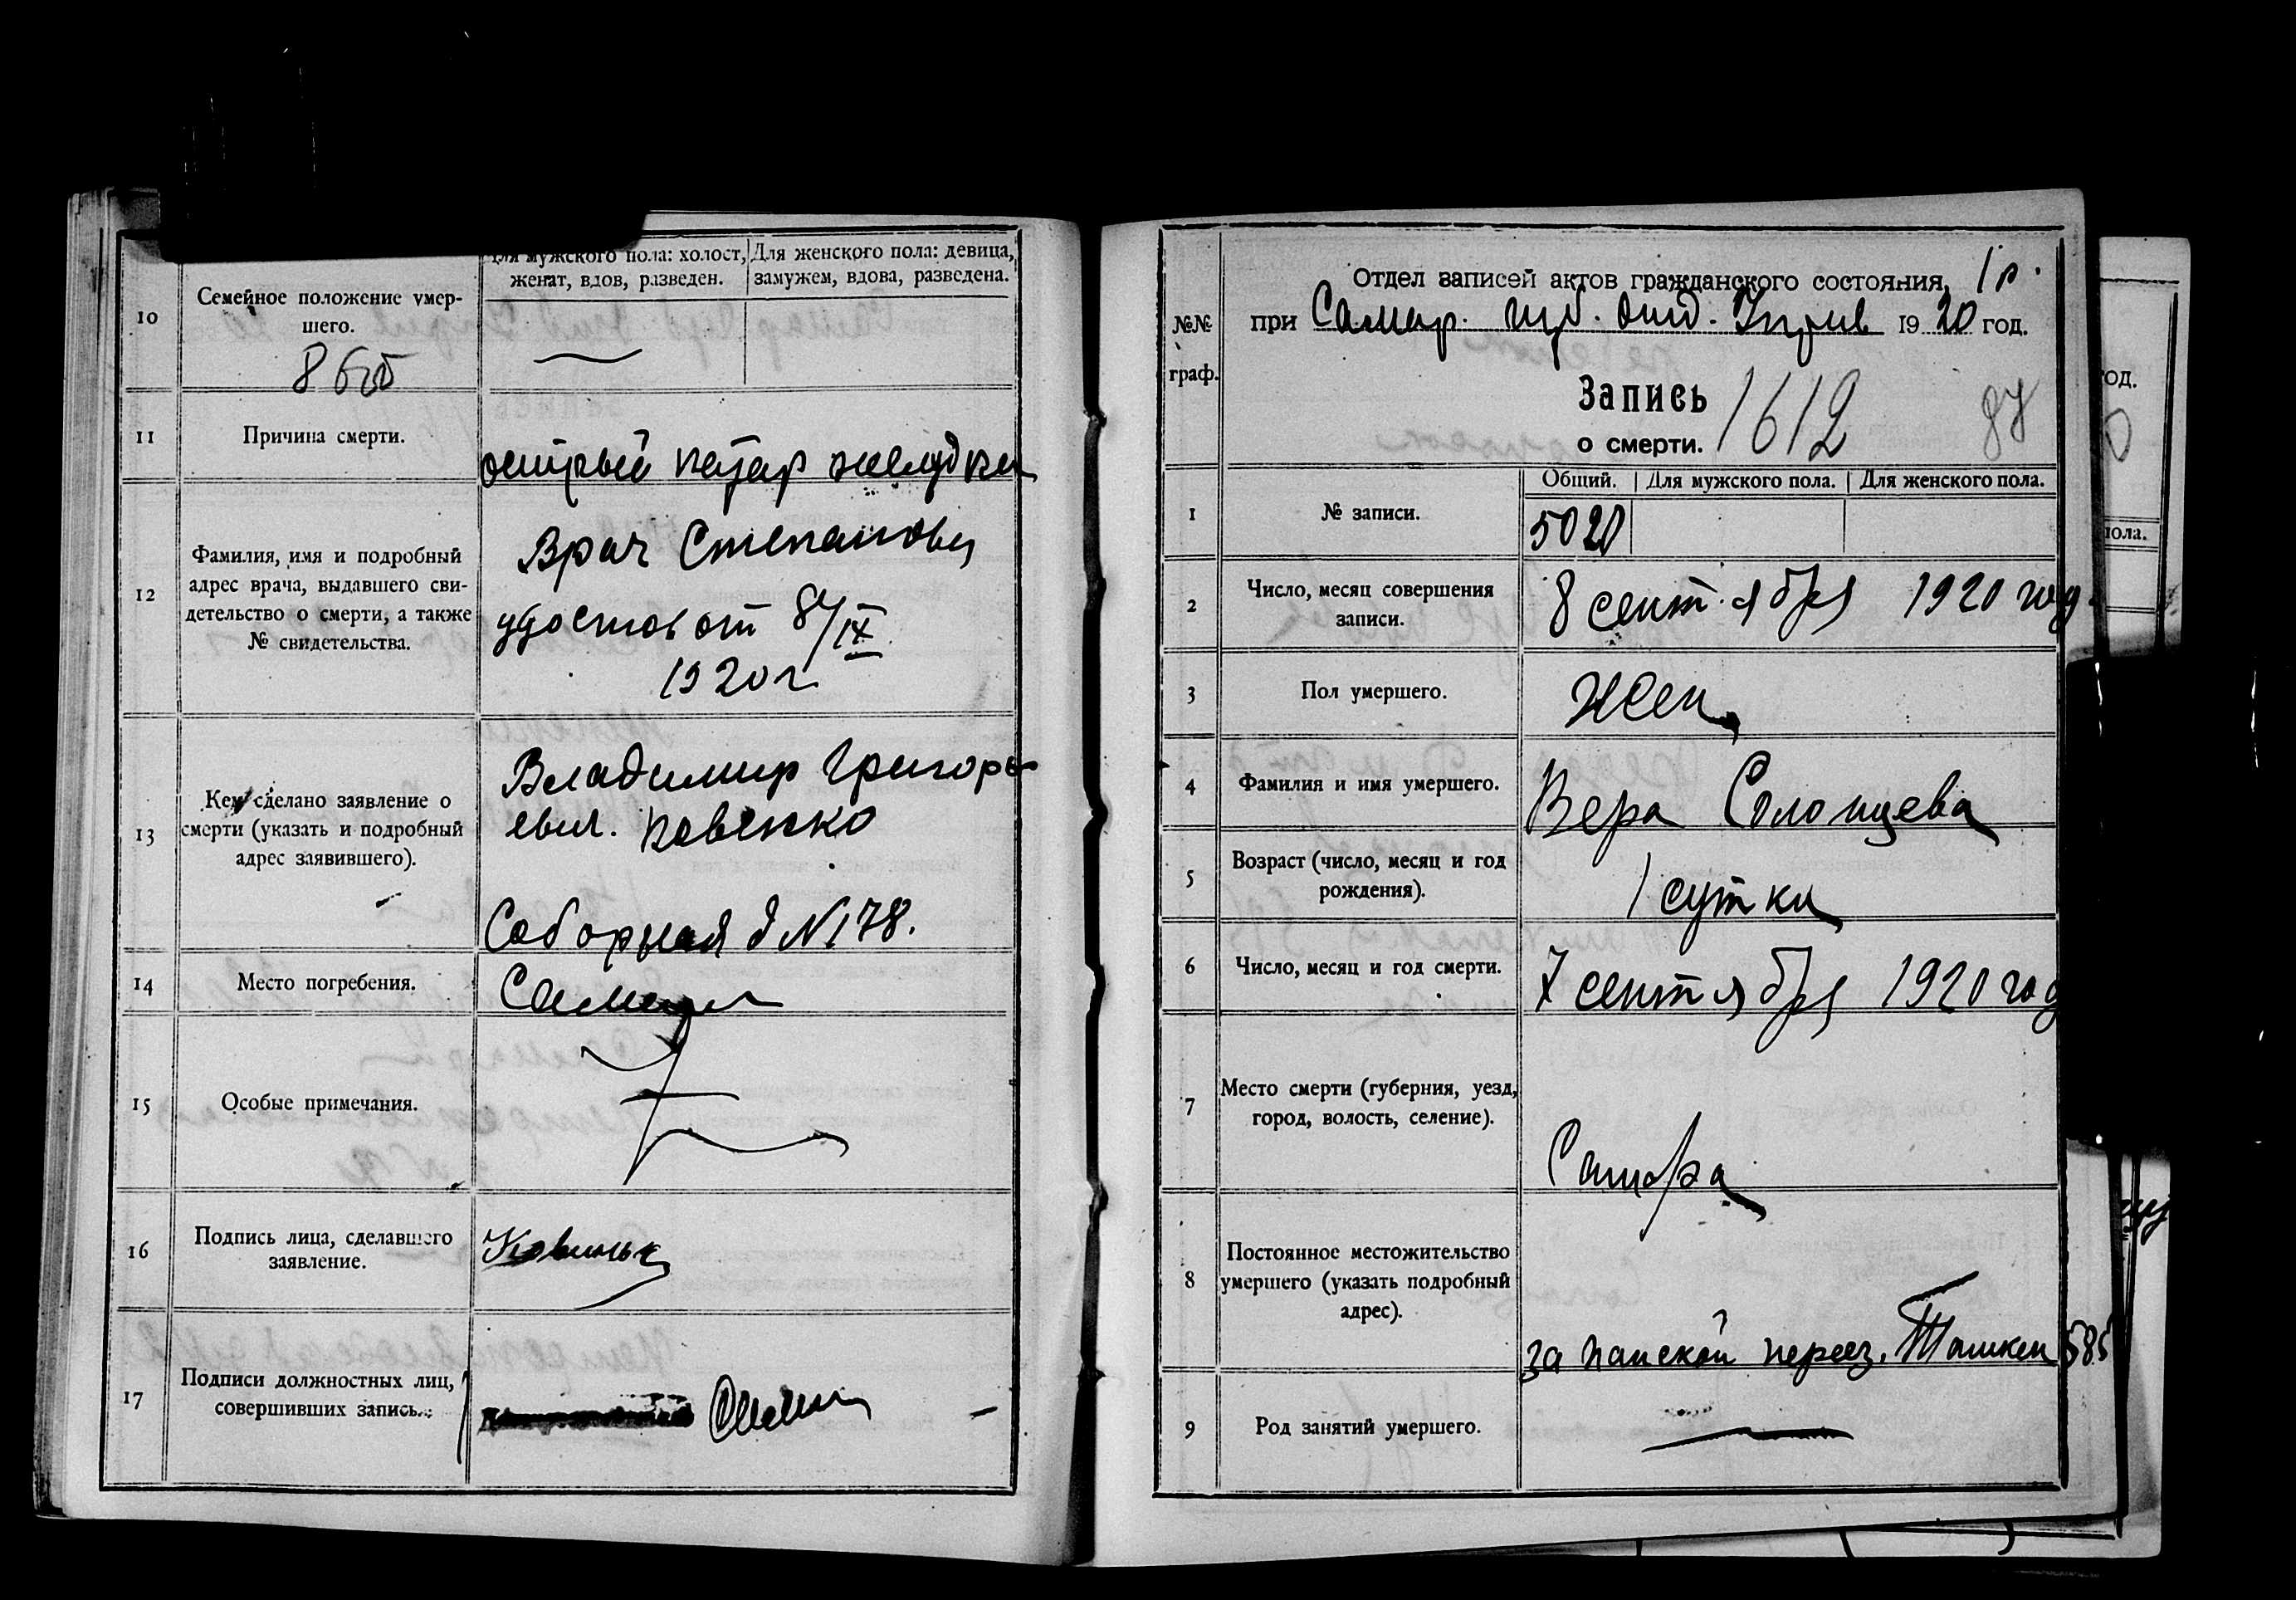 10
Семейное положение умер-
шего.
Для мужского пола: холост,
женат, вдов, разведен.
Для женского пола: девица,
замужем, вдова, разведена.
11
Причина смерти.
острый катар желудка
12
Фамилия, имя и подробный
адрес врача, выдавшего сви-
детельство о смерти, а также
№ свидетельства.
Врач Степановы
удостов от 8/IX
1920 г
13
Кем сделано заявление о
смерти (указать и подробный
адрес заявившего).
Владимир Григорь
евич.
Соборная д N 178.
14
Место погребения.
Самара
15
Особые примечания.
16
Подпись лица, сделавшего
заявление.
17
Подписи должностных лиц,
совершивших запись.
№№
граф.
Отдел записей актов гражданского состояния 1 р.
при Самар. губ. отд. Управ 1920 год.
Запись
о смерти.
1612
87
1
№ записи.
Общий.
Для мужского пола.
Для женского пола.
5020
2
Число, месяц совершения
записи.
8 сентября 1920 год.
3
Пол умершего.
Жен
4
Фамилия и имя умершего.
Вера Солонцева
5
Возраст (число, месяц и год
рождения).
1 сутки
6
Число, месяц и год смерти.
7 сентября 1920 год
7
Место смерти (губерния, уезд,
город, волость, селение).
Самара
8
Постоянное местожительство
умершего (указать подробный
адрес).
за панской переез. Ташкен 585
9
Род занятий умершего.
год.
пола.